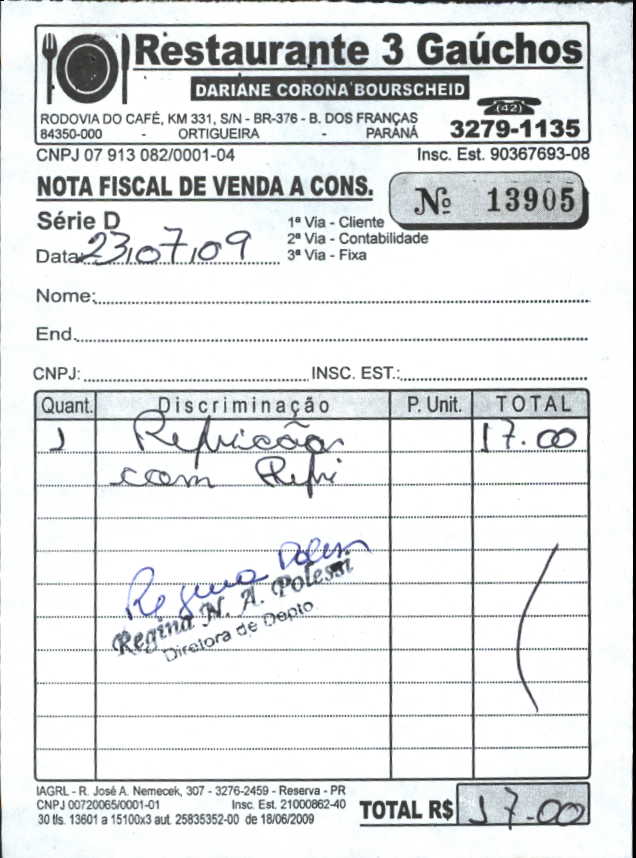 Restaurante 3 Gaúchos
DARIANE CORONA BOURSCHEID
RODOVIA DO CAFÉ, KM 331, S/N - BR-376 - B. DOS FRANÇAS
84350-000 - ORTIGUEIRA - PARANÁ
(42)
3279-1135
CNPJ 07 913 082/0001-04 Insc. Est. 90367693-08
NOTA FISCAL DE VENDA A CONS.
Nº 13905
Série D
1ª Via - Cliente
2ª Via - Contabilidade
3ª Via - Fixa
Data: 23,07,09
Nome:
End.
CNPJ: INSC. EST.:
Quant. Discriminação P. Unit. TOTAL
1 Refeicão 17.00
com Refri
Regina Polessi
Regina N. A. Polessi
Diretora de Depto
IAGRL - R. José A. Nemecek, 307 - 3276-2459 - Reserva - PR
CNPJ 00720065/0001-01 Insc. Est. 21000862-40
30 tls. 13601 a 15100x3 aut. 25835352-00 de 18/06/2009
TOTAL R$ 17.00